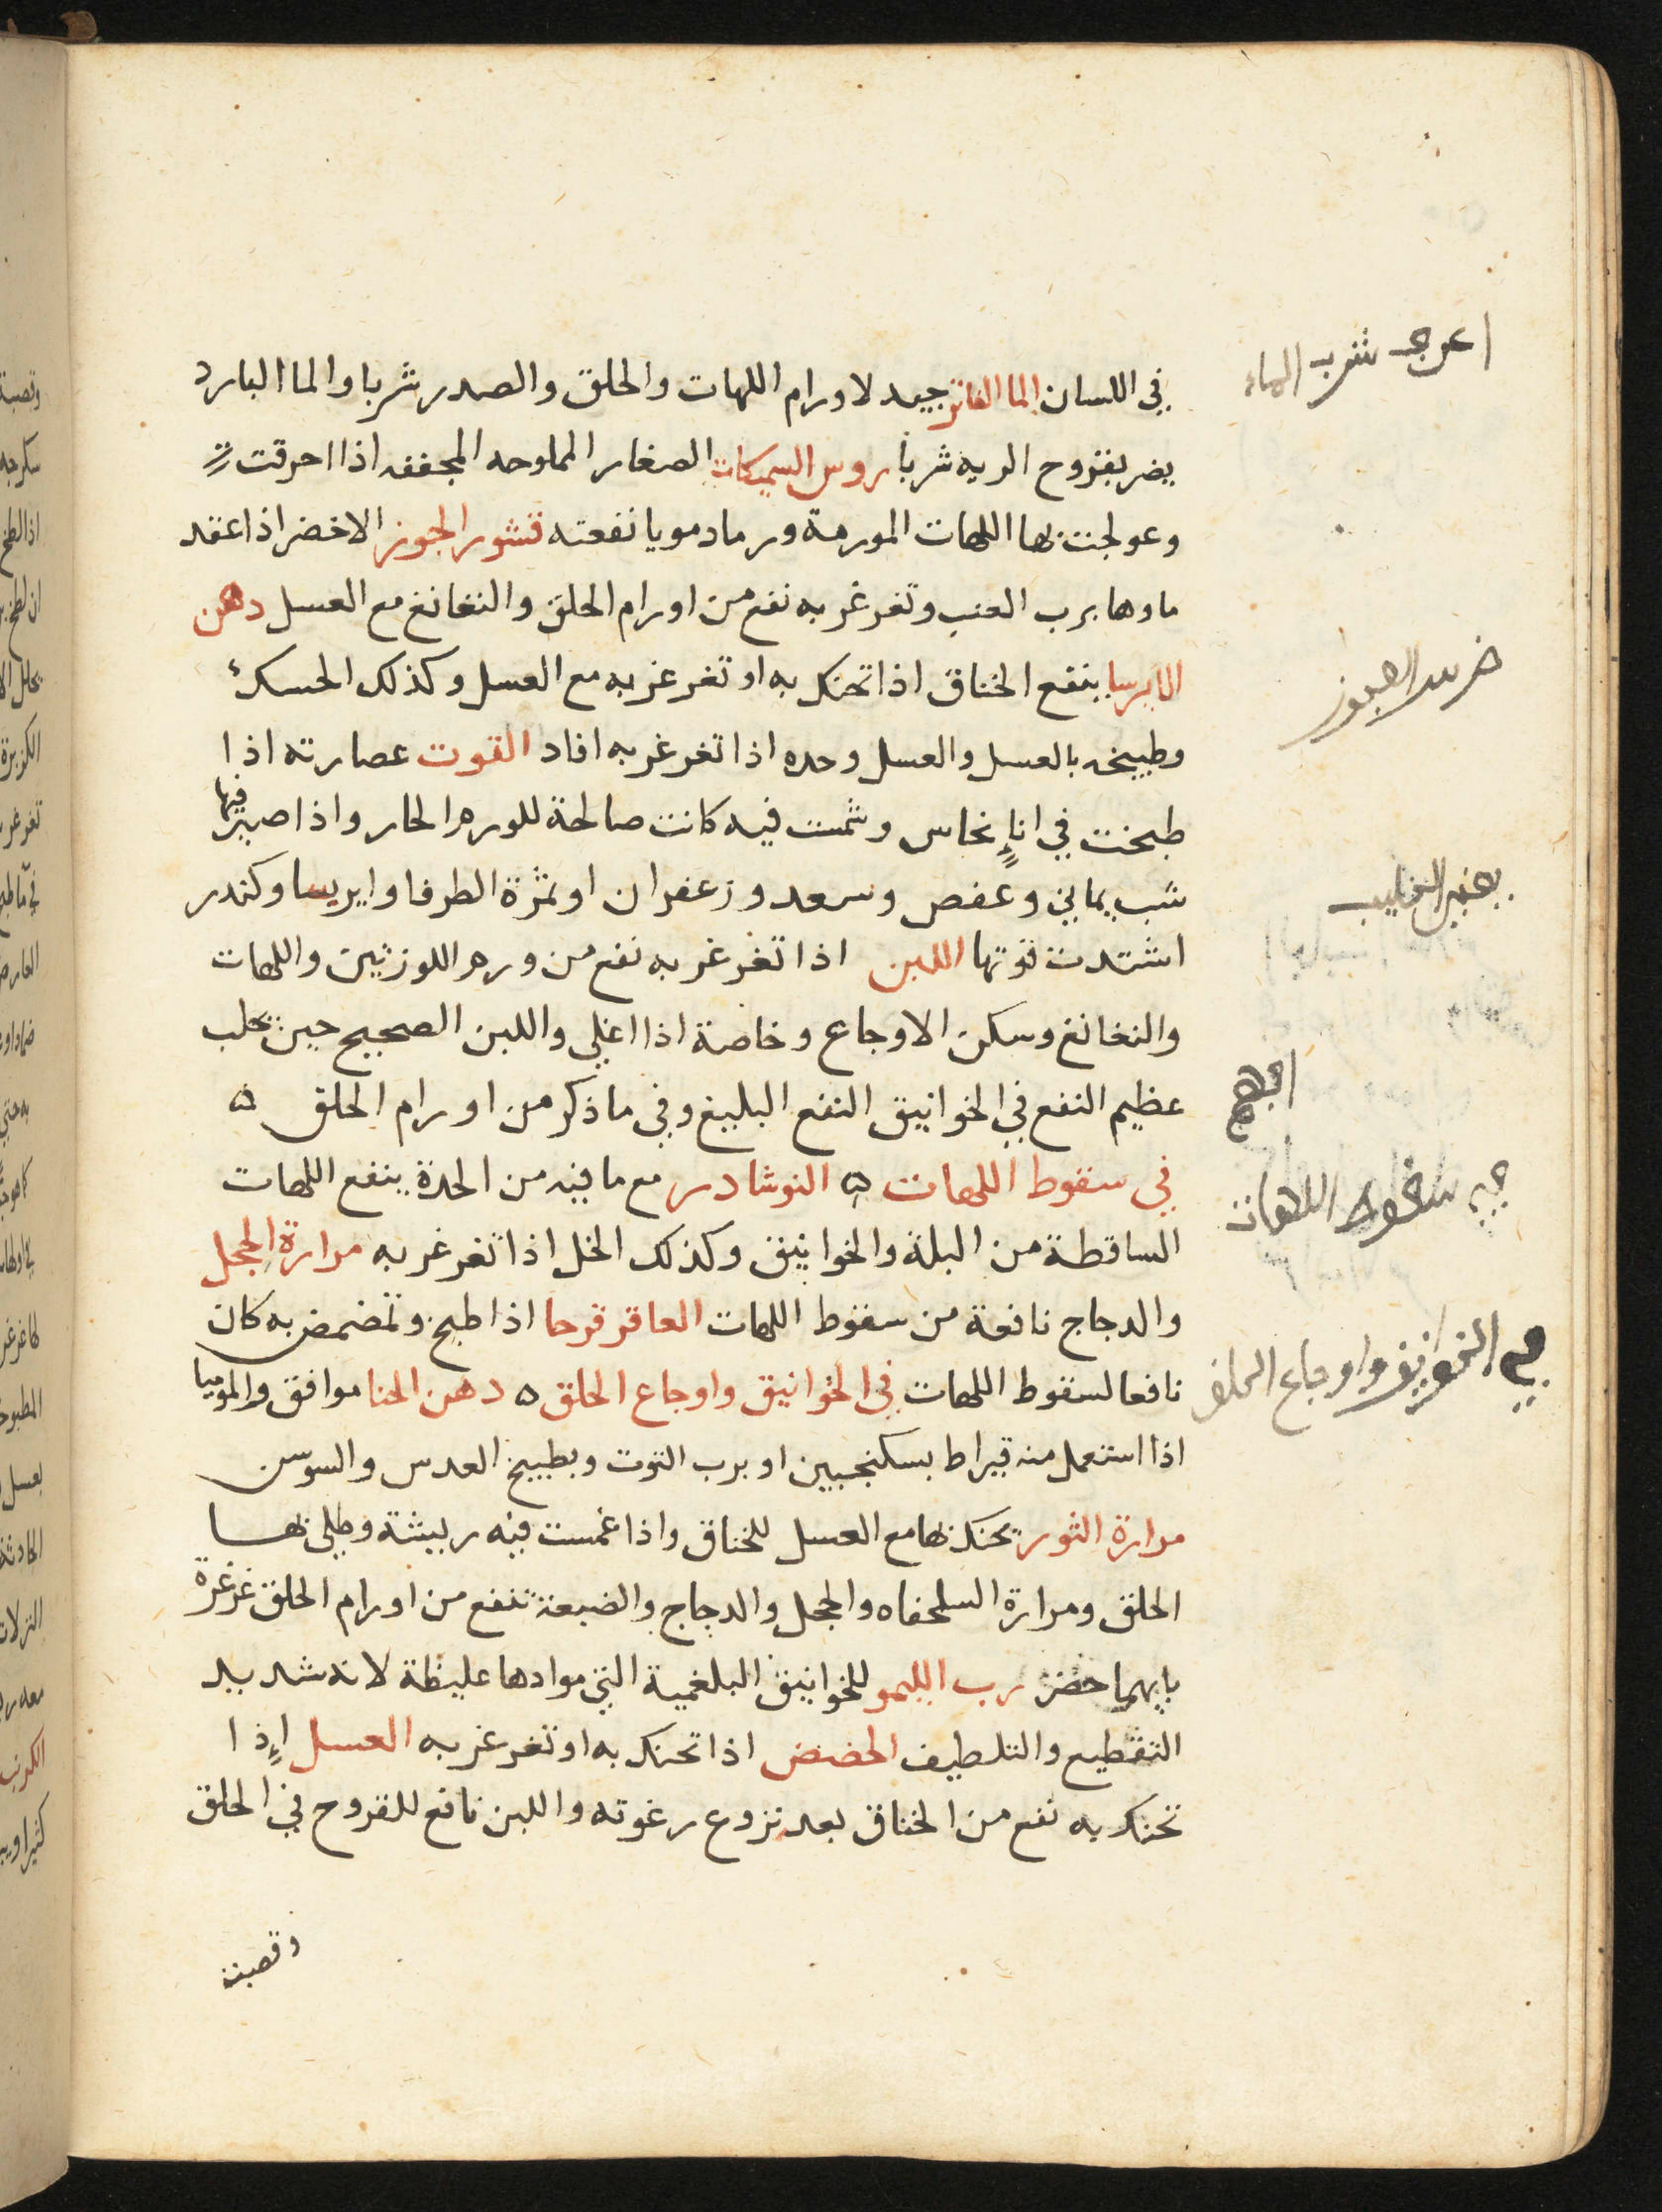 في اللسان الما الفاتر جيد لاورام اللهات والحلق والصدر شربا والما البارد
يضر بقروح الريه شربا روس السميكات الصغار المملوحه المجففه اذا احرقت
وعولجت بها اللهات المورمة ورماد مويا نفعته قشور الجوز الاخضر اذا عقد
ماوها برب العنب وتغرغر به نفع من اورام الحلق والنغانغ مع العسل دهن
الايرسا ينفع الخناق اذا تحنك به او تغرغر به مع العسل وكذلك الحسك
وطبيخه بالعسل والعسل وحده اذا تغرغر به افاد التوت عصارته اذا
طبخت في انإ نحاس وشمت فيه كانت صالحة للورم الحار واذا صير فيها
شب يماني وعفص وسعد وزعفران او ثمرة الطرفا وايريسا وكندر
اشتدت قوتها اللبن اذا تغرغر به نفع من ورم اللوزتين واللهات
والنغانغ وسكن الاوجاع وخاصة اذا اغلي واللبن الصحيح حين يحلب
عظيم النفع في الخوانيق النفع البليغ وفي ما ذكر من اورام الحلق ه
في سقوط اللهات ه النوشادر مع ما فيه من الحدة ينفع اللهات
الساقطة من البلة والخوانيق وكذلك الخل اذا تغرغر به مرارة الحجل
والدجاج نافعة من سقوط اللهات العاقر قرحا اذا طبخ وتمضمض به كان
نافعا لسقوط اللهات في الخوانيق واوجاع الحلق ه دهن الحنا موافق والموميا
اذا استعمل منه قيراط بسكنجبين او برب التوت وبطبيخ العدس والسوسن
مرارة الثور يحنك بها مع العسل للخناق واذا غمست فيه ريشة وطلي بها
الحلق ومرارة السلحفاه والحجل والدجاج والضبعة تنفع من اورام الحلق غرغرة
بايهما حضر رب الليمو للخوانيق البلغمية التي موادها غليظة لانه شديد
التقطيع والتلطيف الحضض اذا تحنك به او تغرغر به العسل اذا
تحنك به نفع من الخناق بعد نزوع رغوته واللبن نافع للقروح في الحلق
وقصبة
شرب الماء
في سقوط اللهات
في الخوانيق واوجاع الحلق